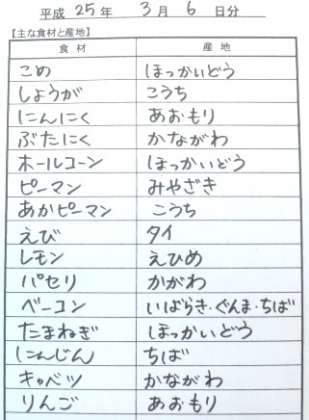 平成 25 年 3 月 6 日分
【主な食材と産地】
食材 産地
こめ ほっかいどう
しょうが こうち
にんにく あおもり
ぶたにく かながわ
ホールコーン ほっかいどう
ピーマン みやざき
あかピーマン こうち
えび タイ
レモン えひめ
パセリ かがわ
ベーコン いばらき・ぐんま・ちば
たまねぎ ほっかいどう
にんじん ちば
キャベツ かながわ
りんご あおもり